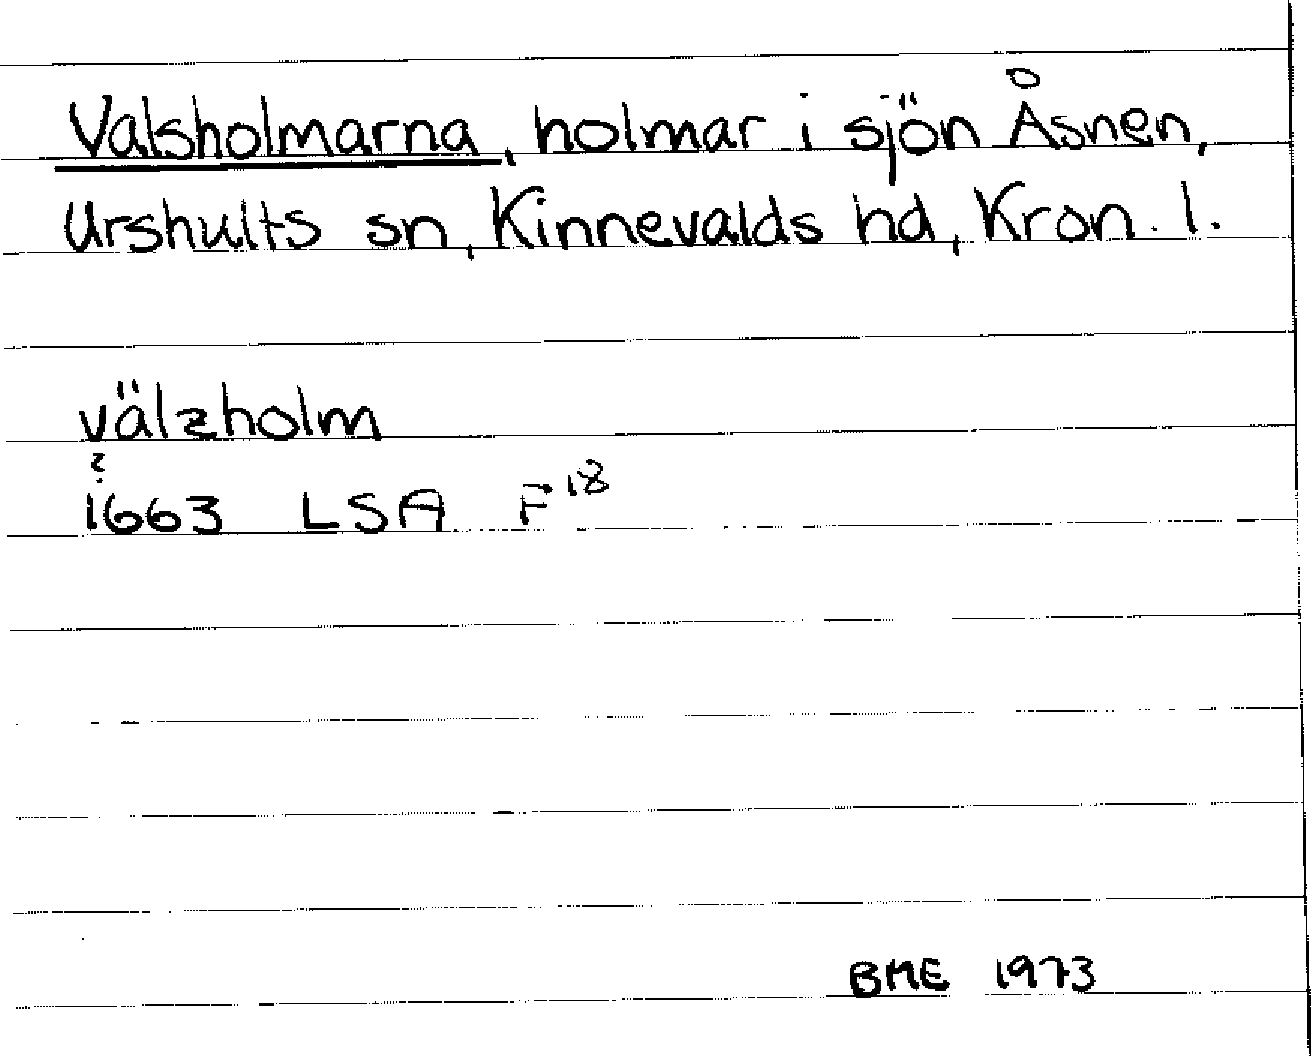 Valsholmarna, holmar i sjön Åsnen,
Urshults sn, Kinnevalds hd, Kron. l.
välzholm
?
1663 LSA F18
BME 1973